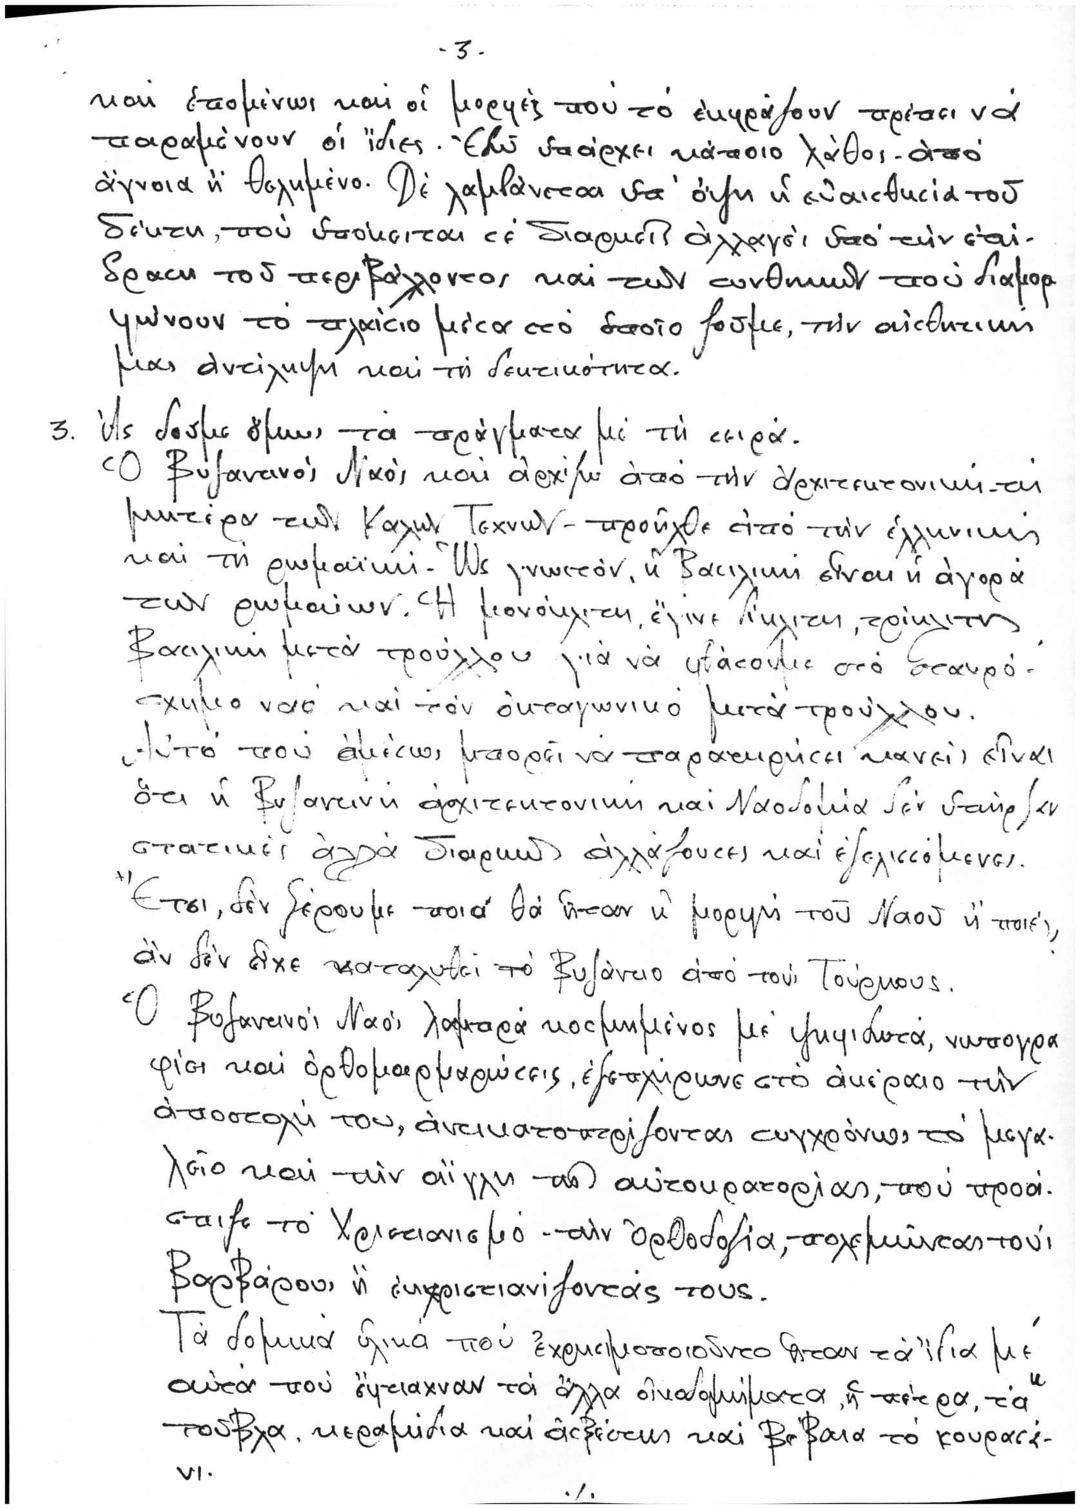 -3-
καί ἑπομένως καί οἱ μορφές πού τό ἐκφράζουν πρέπει νά
παραμένουν οἱ ἴδιες. Ἐδῶ ὑπάρχει κάποιο λάθος - ἀπό
ἄγνοια ἤ θελημένο. Δέ λαμβάνεται ὑπ' ὄψη ἡ εὐαισθησία τοῦ
δέκτη, πού ὑπόκειται σέ διαρκεῖς ἀλλαγές ὑπό τήν ἐπί-
δραση τοῦ περιβάλλοντος καί τῶν συνθηκῶν πού διαμορ
φώνουν τό πλαίσιο μέσα στό ὁποῖο ζοῦμε, τήν αἰσθητική
μας ἀντίληψη καί τή δεκτικότητα.
3. Ἄς δοῦμε ὅμως τά πράγματα μέ τή σειρά.
Ὁ Βυζαντινός Ναός καί ἀρχίζω ἀπό τήν ἀρχιτεκτονική - τή
μητέρα τῶν Καλῶν Τεχνῶν - προῆλθε ἀπό τήν ἑλληνική
καί τή ρωμαϊκή. Ὡς γνωστόν, ἡ Βασιλική εἶναι ἡ ἀγορά
τῶν ρωμαίων. Ἡ μονόκλιτη, ἔγινε δίκλιτη, τρίκλιτη
Βασιλική μετά τρούλλου γιά νά φτάσουμε στό σταυρό-
σχημο ναό καί τόν ὀκταγωνικό μετά τρούλλου.
Αὐτό πού ἀμέσως μπορεῖ νά παρατηρήσει κανείς εἶναι
ὅτι ἡ Βυζαντινή ἀρχιτεκτονική καί Ναοδομία δέν ὑπῆρξαν
στατικές ἀλλά διαρκῶς ἀλλάζουσες καί ἐξελισσόμενες.
Ἔτσι, δέν ξέρουμε ποιά θά ἦταν ἡ μορφή τοῦ Ναοῦ ἤ ποιές,
ἄν δέν εἶχε καταλυθεῖ τό Βυζάντιο ἀπό τούς Τούρκους.
Ὁ Βυζαντινός Ναός λαμπρά κοσμημένος μέ ψηφιδωτά, νωπογρα
φίες καί ὀρθομαρμαρώσεις, ἐξεπλήρωνε στό ἀκέραιο τήν
ἀποστολή του, ἀντικατοπτρίζοντας συγχρόνως τό μεγα-
λεῖο καί τήν αἴγλη τῆς αὐτοκρατορίας, πού προά-
σπιζε τό Χριστιανισμό - τήν Ὀρθοδοξία, πολεμώντας τούς
Βαρβάρους ἤ ἐκχριστιανίζοντάς τους.
Τά δομικά ὑλικά πού ἐχρησιμοποιοῦντο ἦταν τά ἴδια μέ
αὐτά πού ἔφτιαχναν τά ἄλλα οἰκοδομήματα, ἡ πέτρα, τά
τοῦβλα, κεραμίδια καί ἀσβέστης καί βέβαια τό κουρασά-
VI.
./.